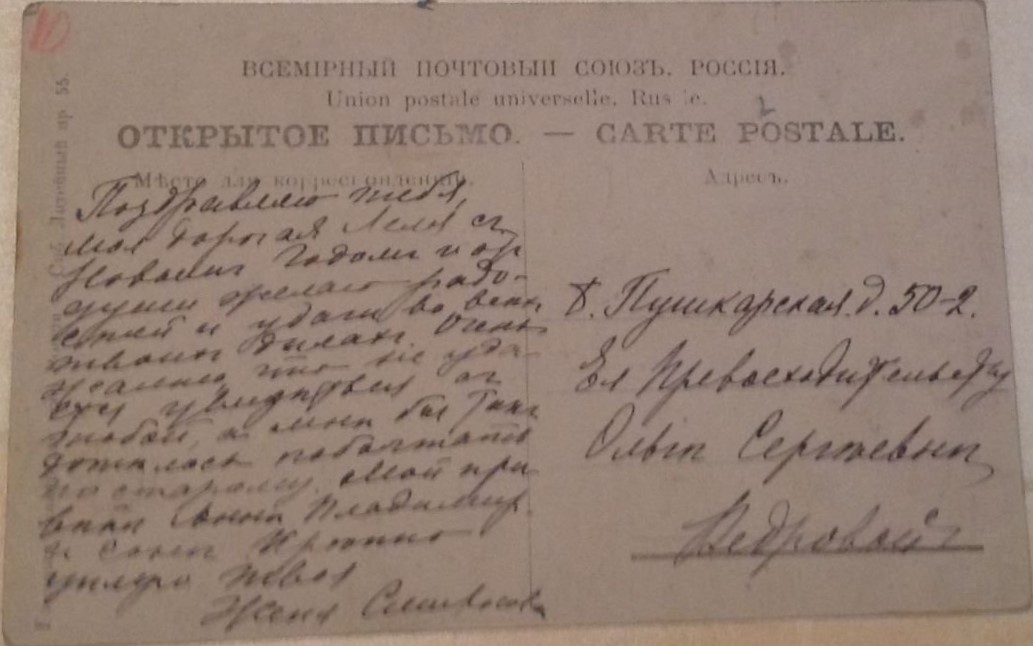 ВСЕМІРНЫЙ ПОЧТОВЫЙ СОЮЗЪ. РОССІЯ.
Union postale universelle. Russie.
ОТКРЫТОЕ ПИСЬМО. — CARTE POSTALE.
Мѣсто для корреспонденціи.
Адресъ.
Поздравляю тебя,
моя дорогая Леля съ
Новымъ Годомъ и отъ
души желаю радо-
стей и удачи во всѣхъ
твоихъ дѣлахъ. Очень
жалѣю что не уда-
увидѣться съ
тобой, а мнѣ бы такъ
хотѣлось поболтать
по старому. Мой при-
вѣтъ Аннѣ Владимир.
и Сонѣ Крѣпко
цѣлую твоя
Женя
Б. Пушкарская. д. 50-2.
Ея Превосходительству
Ольгѣ Сергѣевнѣ
Ведровой
Литейный пр. 55.